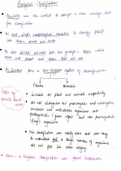 Biological Classification
Aristotle was the earliest to attempt a more scientific basis
for classification
He used simple morphological characters to classify plants
into trees, shrubs and herbs.
He also divided animals into two groups, those which
have red blood and those that do not.
R. Linnaeus - Two kingdom system of classification
Plantae
Animalia
Included all plants and animals respectively
Did not distinguish b/w prokaryotes and eukaryotes,
unicellular and multicellular organisms and
photosynthetic (green algae) and non-photosynthetic
(fungi) organisms.
This classification was easily done and was easy
to understand but a large number of organisms
did not fall into either category.
Hence 2 kingdom classification was found inadequate.